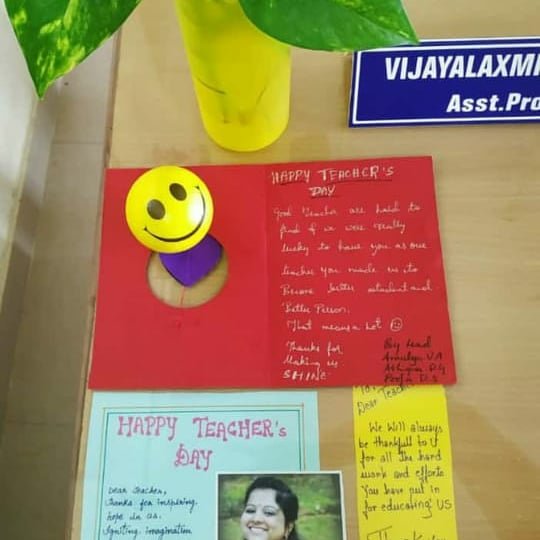 VIJAYALAXMI
Asst.Pro
HAPPY TEACHER'S
DAY
Good Teacher are hard to
find & we were really
lucky to have you as our
teacher you made us to
Become better student and
Better Person.
That means a lot
Thanks for
Making us
SHINE
By
U.A
D.G
Pooja D.S
HAPPY TEACHER's
DAY
Dear Teacher,
Thanks for inspiring
hope in us.
Igniting imagination
To,
Dear Teacher
We Will always
be thankfull to U
for all the hard
work and efforts
You have put in
for educating US